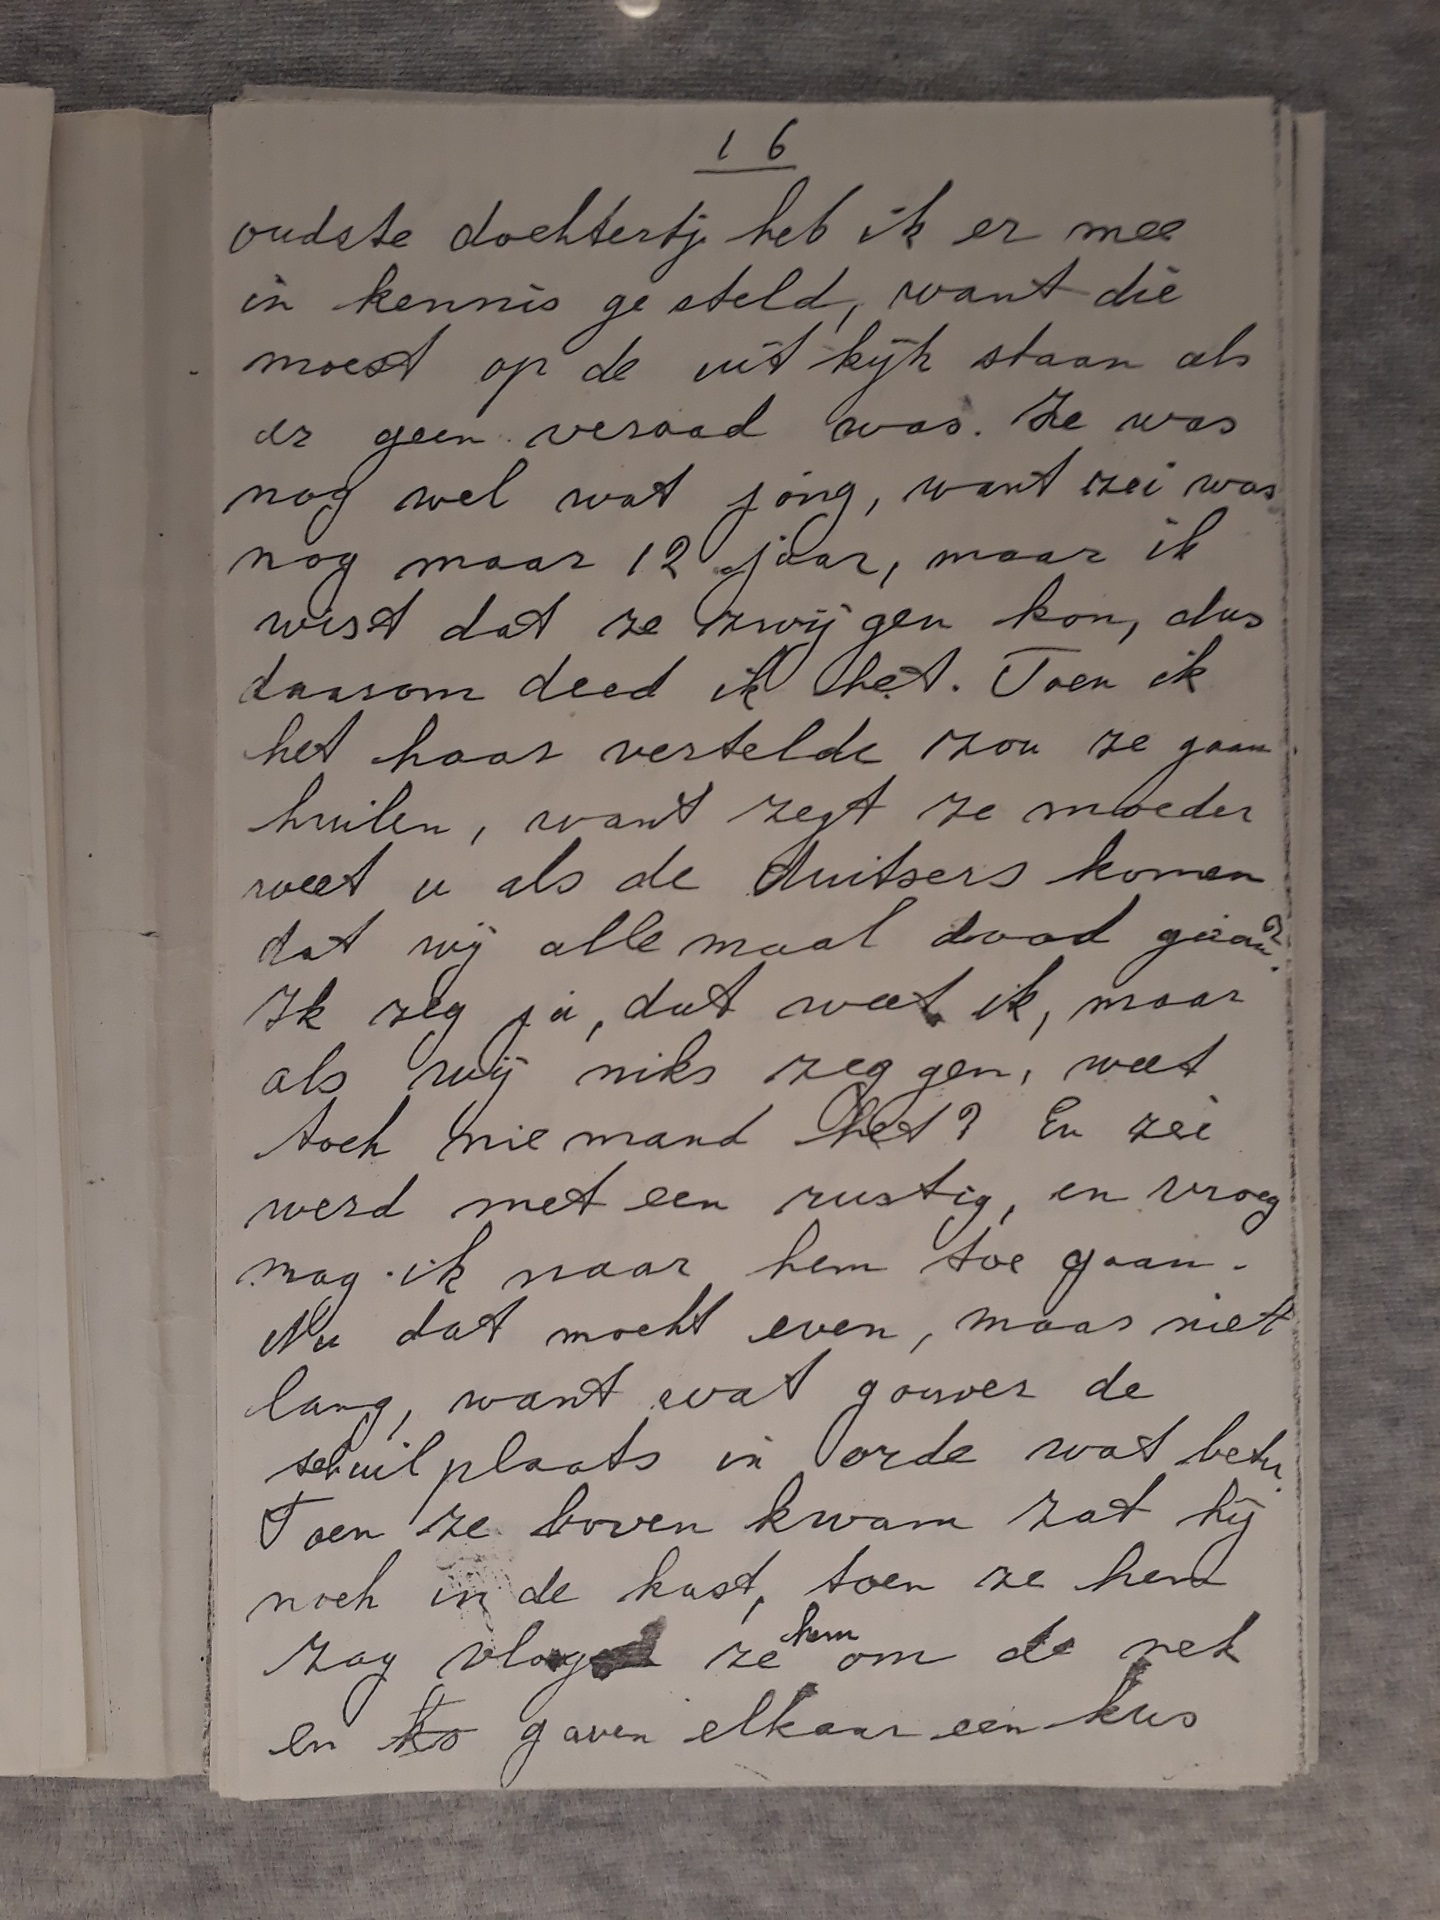 16
oudste dochtertj heb ik er mee
in kennis ge steld, want die
moest op de uit kijk staan als
er geen veraad was. Ze was
nog wel wat jong, want zei was
nog maar 12 jaar, maar ik
wist dat ze zwij gen kon, dus
daarom deed ik het. Toen ik
het haar vertelde zou ze gaan
huilen, want zegt ze moeder
weet u als de duitsers komen
dat wij alle maal dood gaan?
Ik zeg ja, dat weet ik, maar
als wij niks zeg gen, weet
toch nie mand het? En zei
werd met een rustig, en vroeg
mag ik naar hem toe gaan.
Nu dat mocht even, maar niet
lang, want wat gouwer de
schuil plaats in orde wat beter.
Toen ze boven kwam zat hij
noch in de kast, toen ze hem
zag vloog ze hem om de nek
en to gaven elkaar een kus